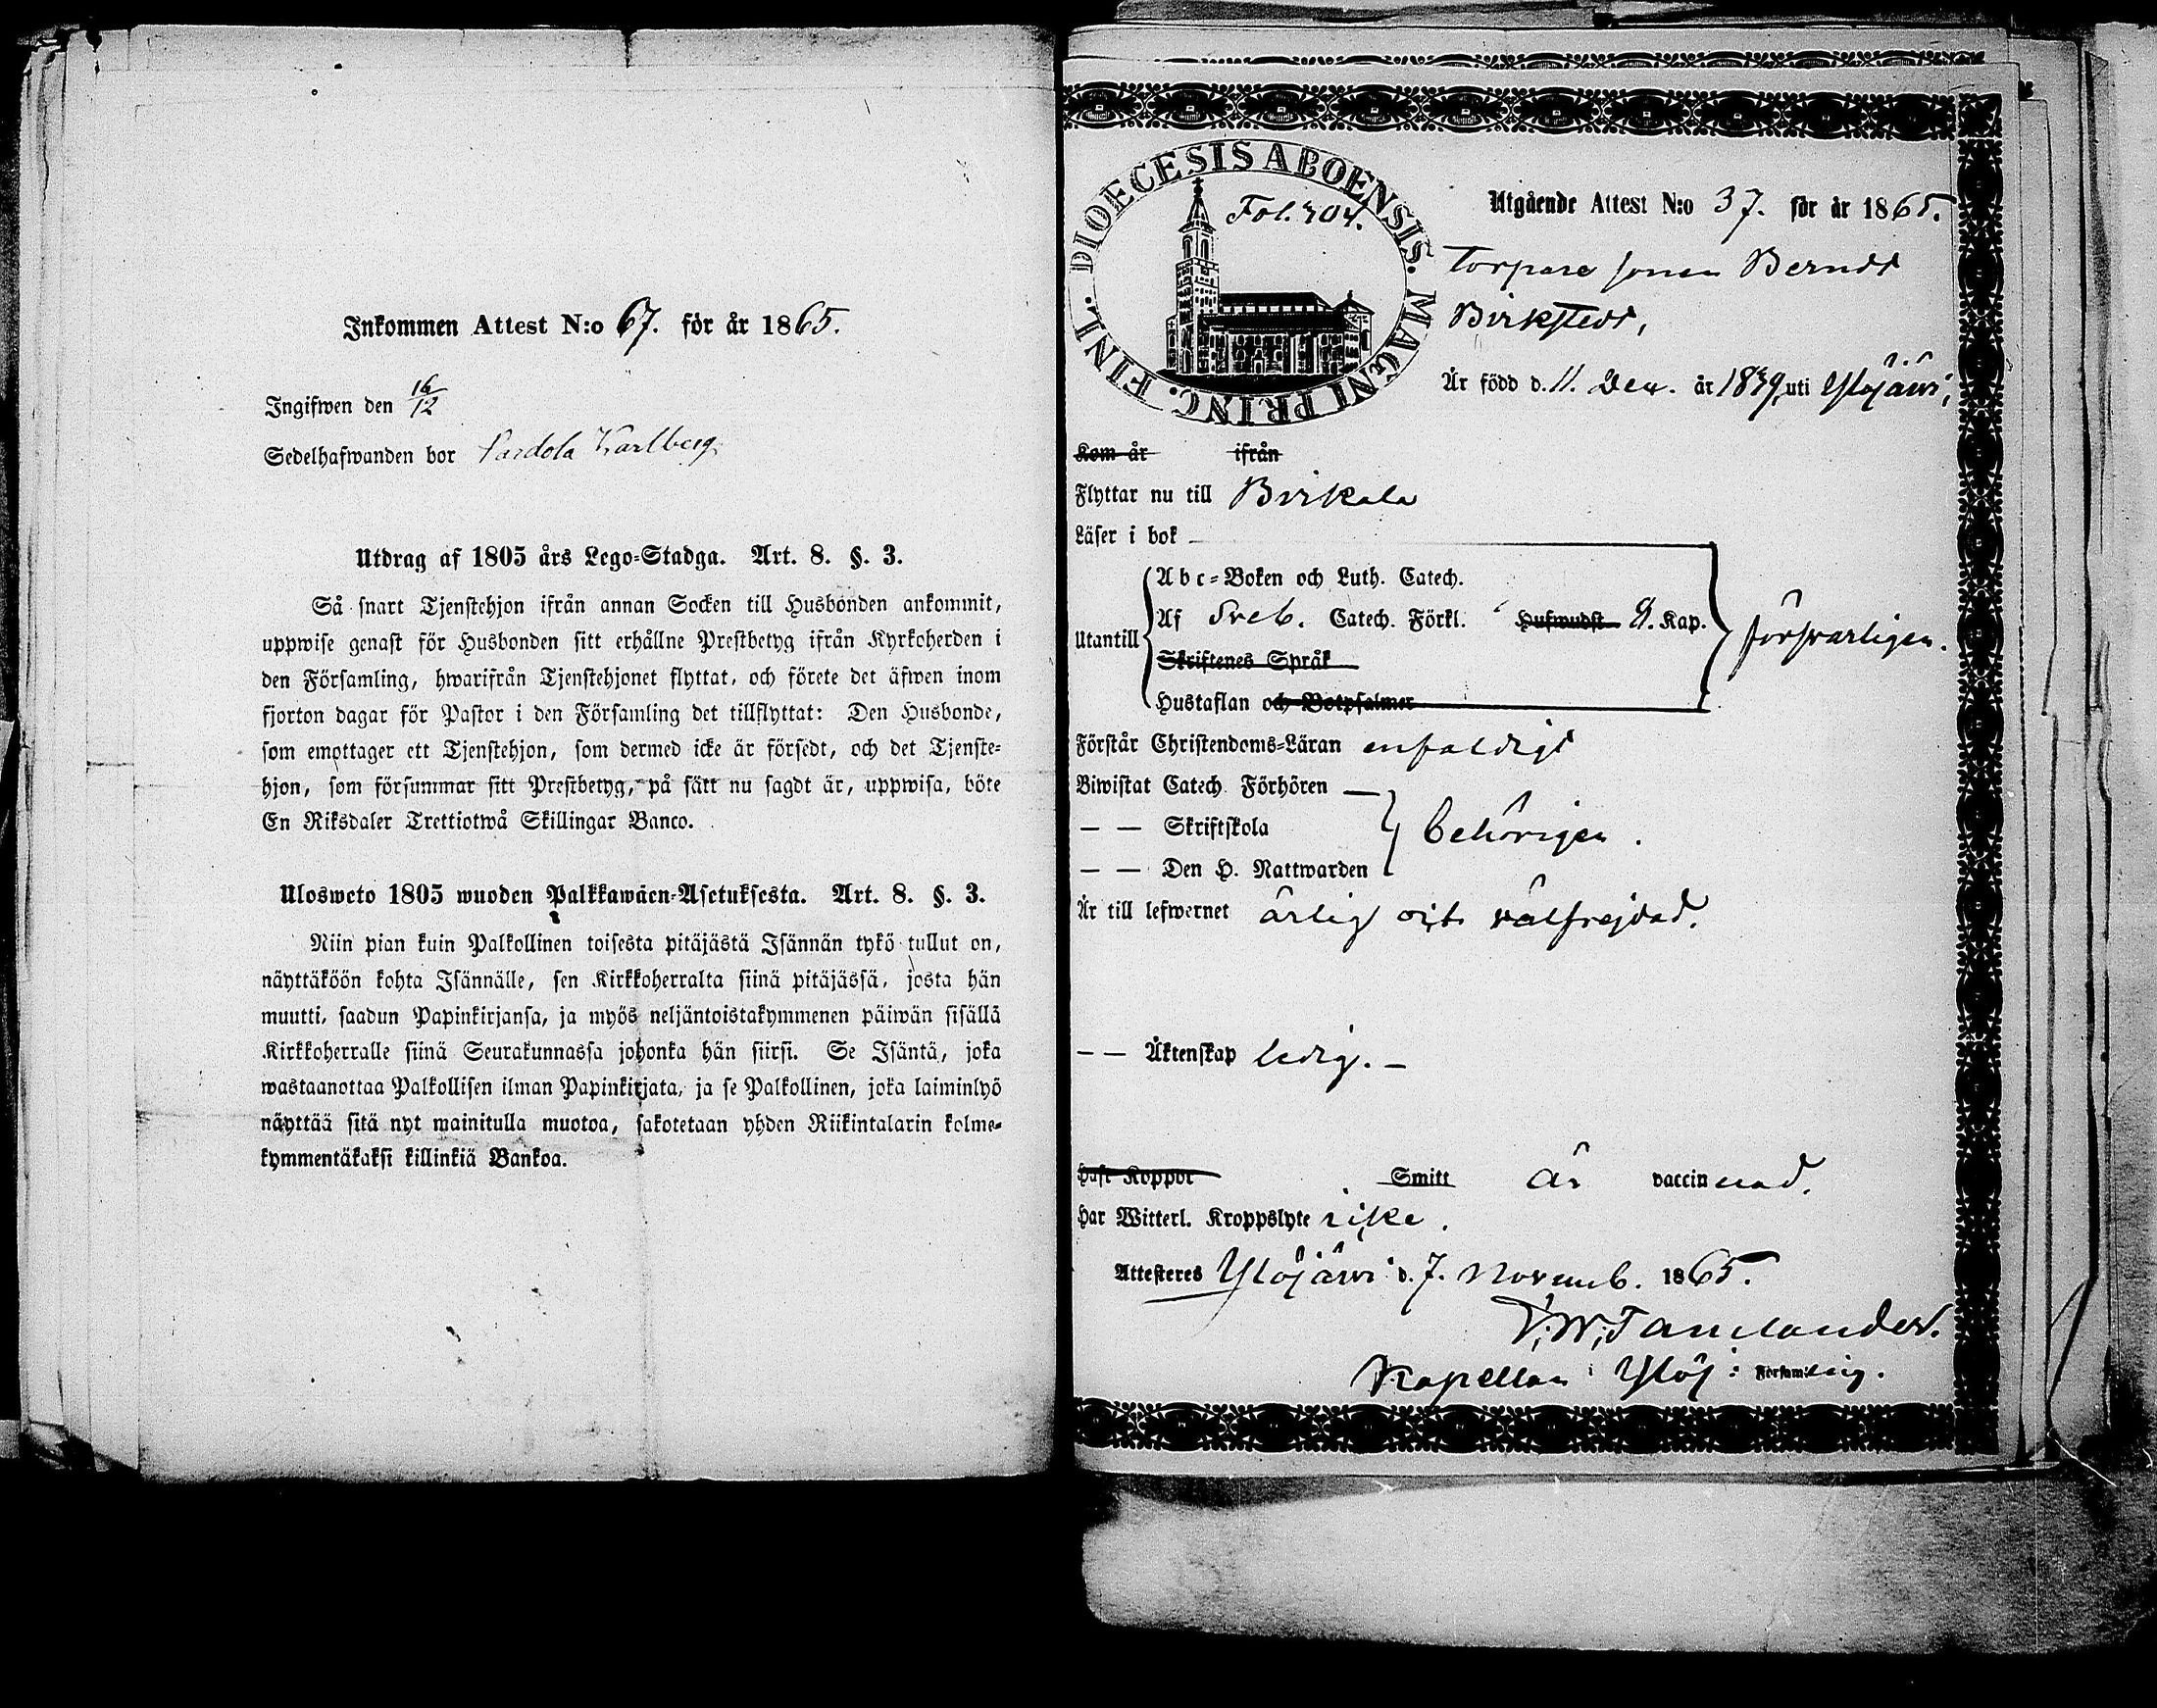 Inkommen Attest N:o 67. för år 1865.
Ingifwen den 16/12
Sedelhafwanden bor Pardola Karlberg
Utdrag af 1805 års Lego-Stadga. Art. 8. §. 3.
Så snart Tjenstehjon ifrån annan Socken till Husbonden ankommit,
uppwise genast för Husbonden sitt erhållne Prestbetyg ifrån Kyrkoherden i
den Församling, hwarifrån Tjenstehjonet flyttat, och förete det äfwen inom
fjorton dagar för Pastor i den Församling det tillflyttat: Den Husbonde,
som emottager ett Tjenstehjon, som dermed icke är försedt, och det Tjenste-
hjon, som försummar sitt Prestbetyg, på sätt nu sagdt är, uppwisa, böte
En Riksdaler Trettiotwå Skillingar Banco.
Ulosweto 1805 wuoden Palkkawäen-Asetuksesta. Art. 8. §. 3.
Niin pian kuin Palkollinen toisesta pitäjästä Isännän tykö tullut on,
näyttäköön kohta Isännälle, sen Kirkkoherralta siinä pitäjässä, josta hän
muutti, saadun Papinkirjansa, ja myös neljäntoistakymmenen päiwän sisällä
Kirkkoherralle siinä Seurakunnassa johonka hän siirsi. Se Isäntä, joka
wastaanottaa Palkollisen ilman Papinkirjata, ja se Palkollinen, joka laiminlyö
näyttää sitä nyt mainitulla muotoa, sakotetaan yhden Riikintalarin kolme-
kymmentäkaksi killinkiä Bankoa.
DIOECESIS ABOENSIS. MAGNI PRINC. FINL.
Fol. 404.
Utgående Attest N:o 37. för år 1865.
Torpare sonen Berndt
Birkstedt,
Är född d. 11. Dec. år 1839, uti Ylöjärvi;
Kom år ifrån
Flyttar nu till Birkala
Läser i bok
Abc-Boken och Luth. Catech.
Utantill Af Sveb. Catech. Förkl. Hufwudst. Kap. försvarligen.
Skriftenes Språk
Hustaflan och Botpsalmer
Förstår Christendoms-Läran enfaldigt
Biwistat Catech. Förhören —
— — Skriftskola behörigen.
— — Den H. Nattwarden
Är till lefwernet ärlig och välfrejdad.
— — Äktenskap ledig. —
Haft Koppor Smitt är vaccinerad.
Har Witterl. Kroppslyte icke.
Attesteras Ylöjärvi d. 7. Novemb. 1865.
Kapellan i Ylöj: Församling.